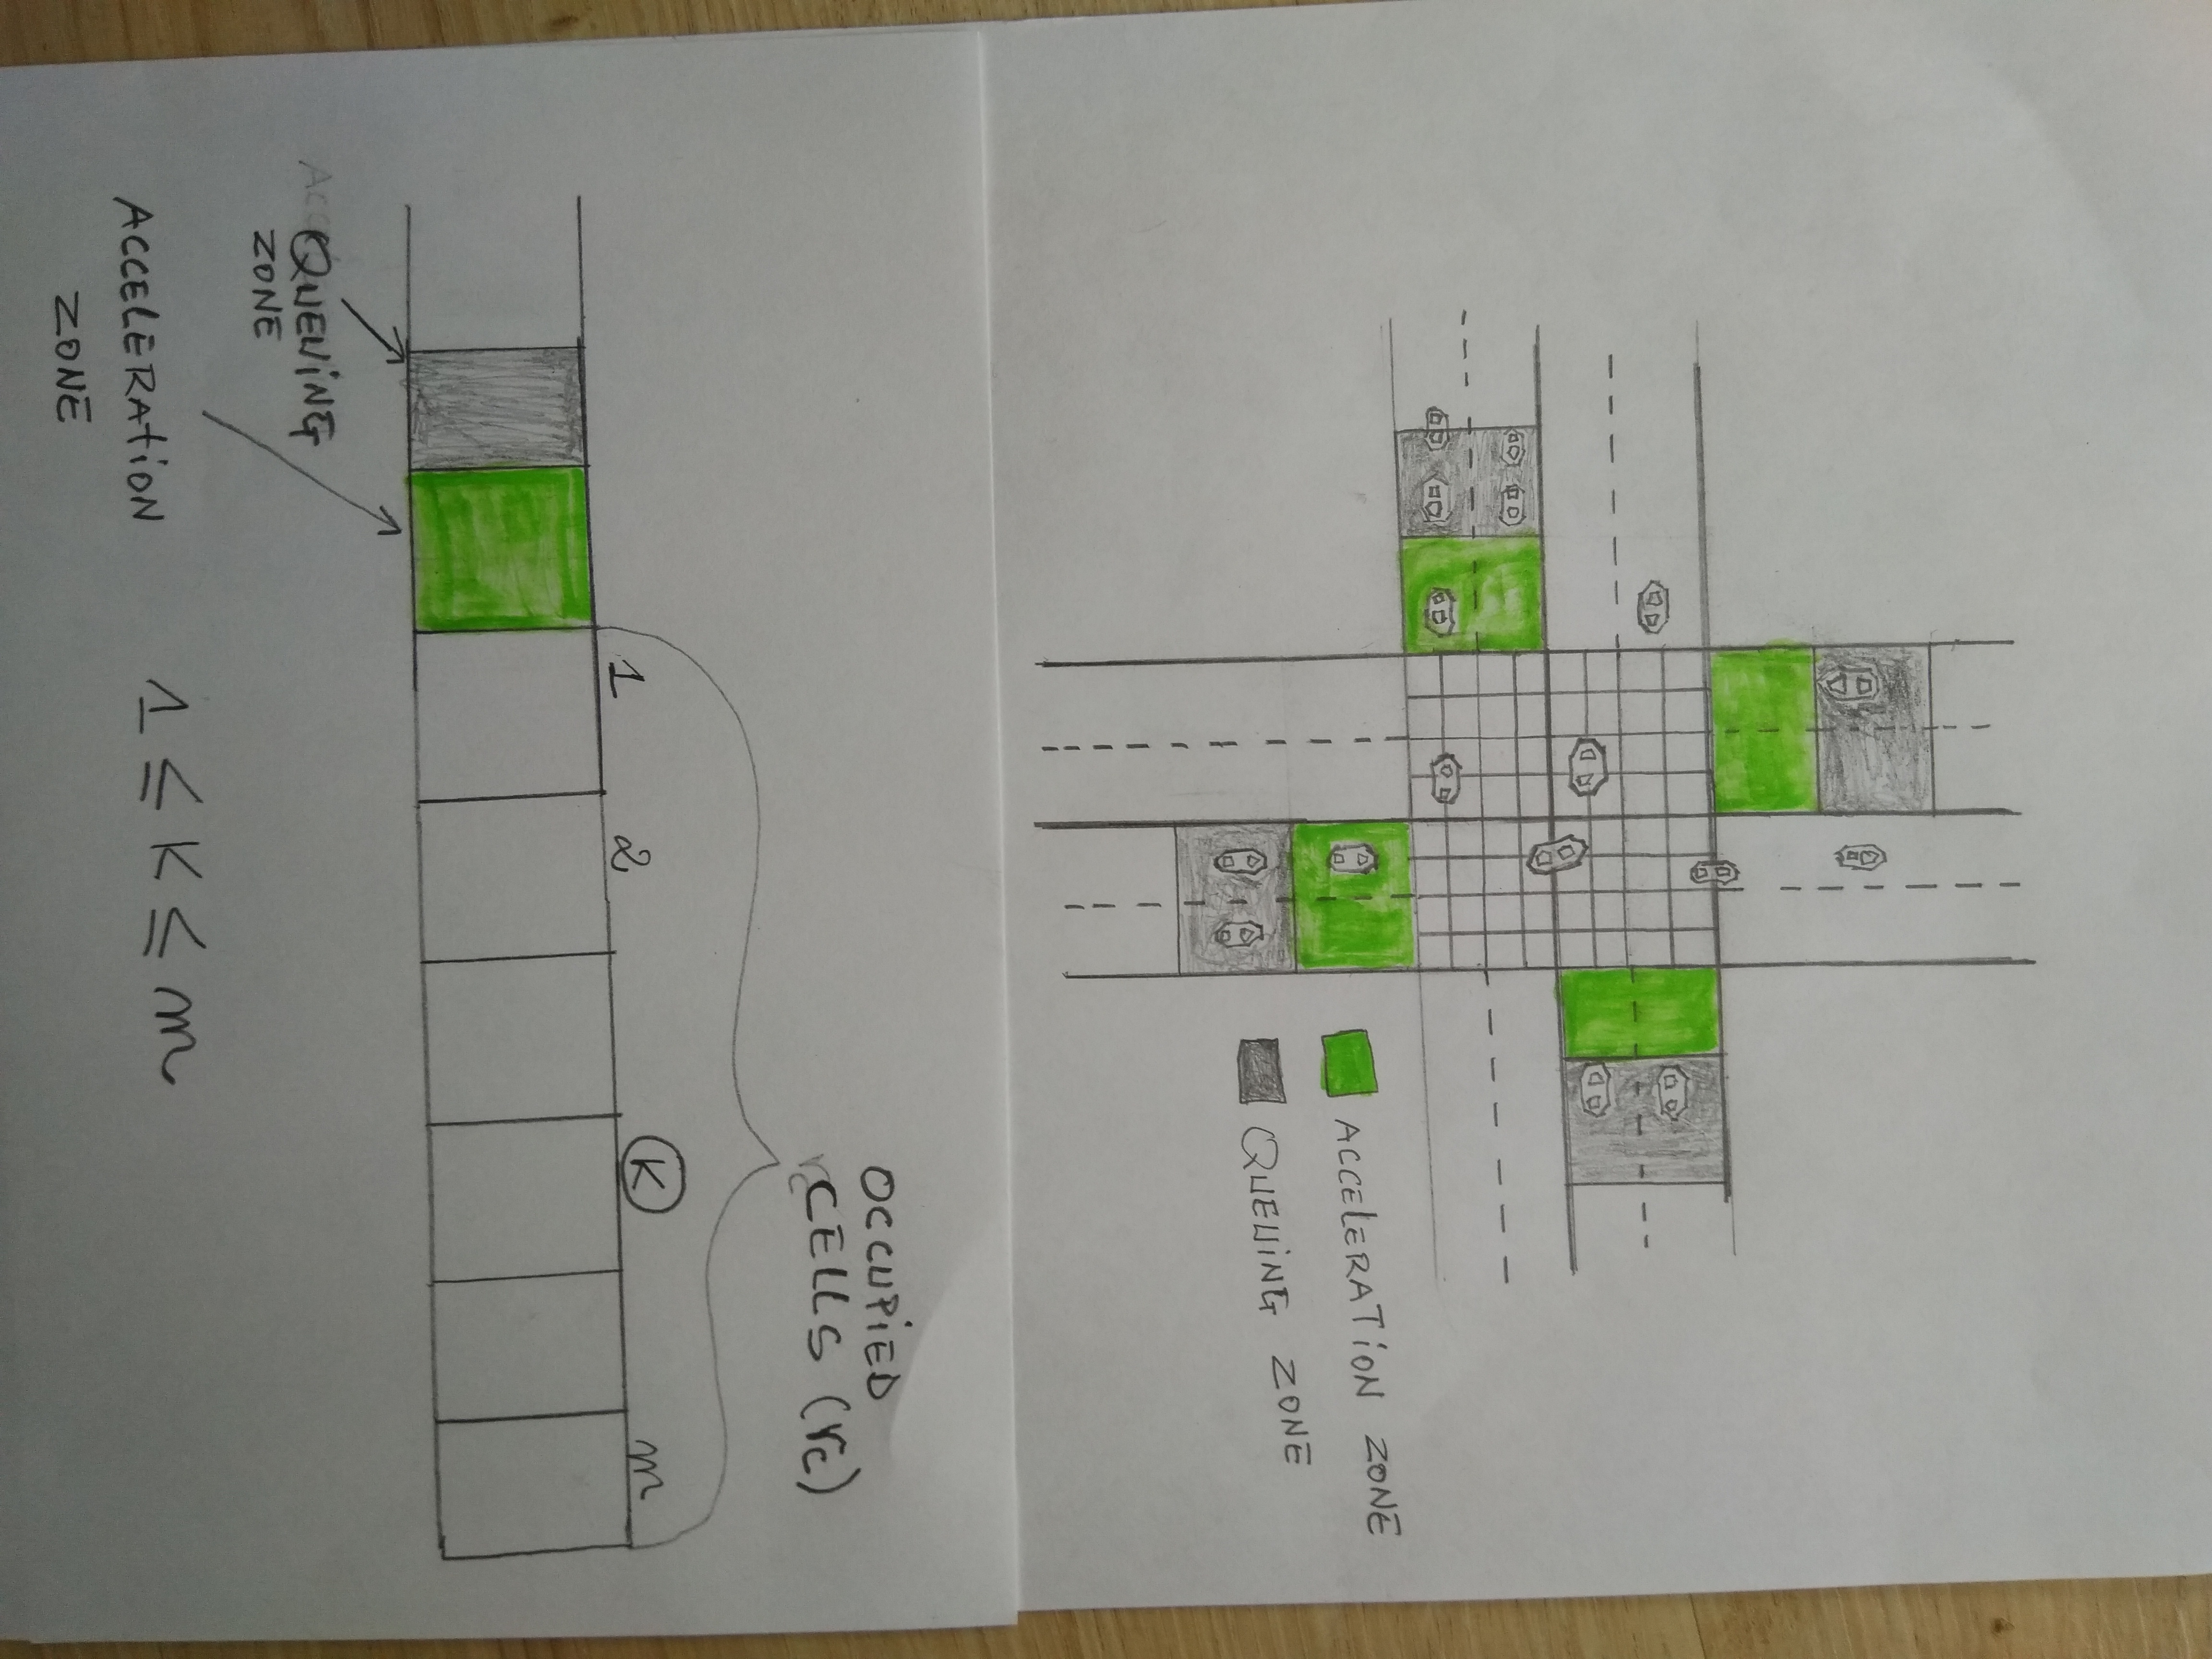 ACCELERATION ZONE
QUEUING ZONE
OCCUPIED
CELLS (rc)
1 2 K m
QUEUING
ZONE
ACCELERATION
ZONE
1 ≤ K ≤ m